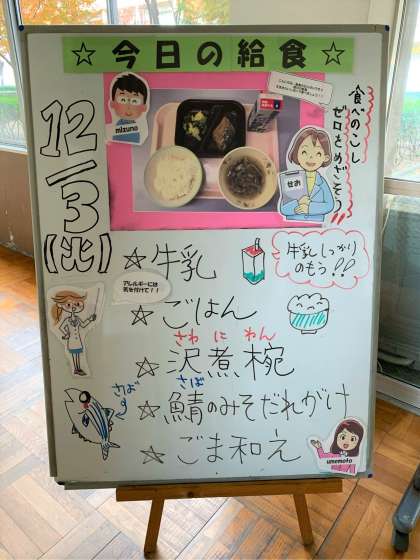 ☆今日の給食☆
12/3
(火)
mizuno
せお
食べのこし
ゼロをめざそう!!
☆牛乳
牛乳しっかり
のもう!!
アレルギーには
気を付けて!!
☆ごはん
さわ に わん
☆沢煮椀
さば
☆鯖のみそだれがけ
さば
☆ごま和え
umemoto